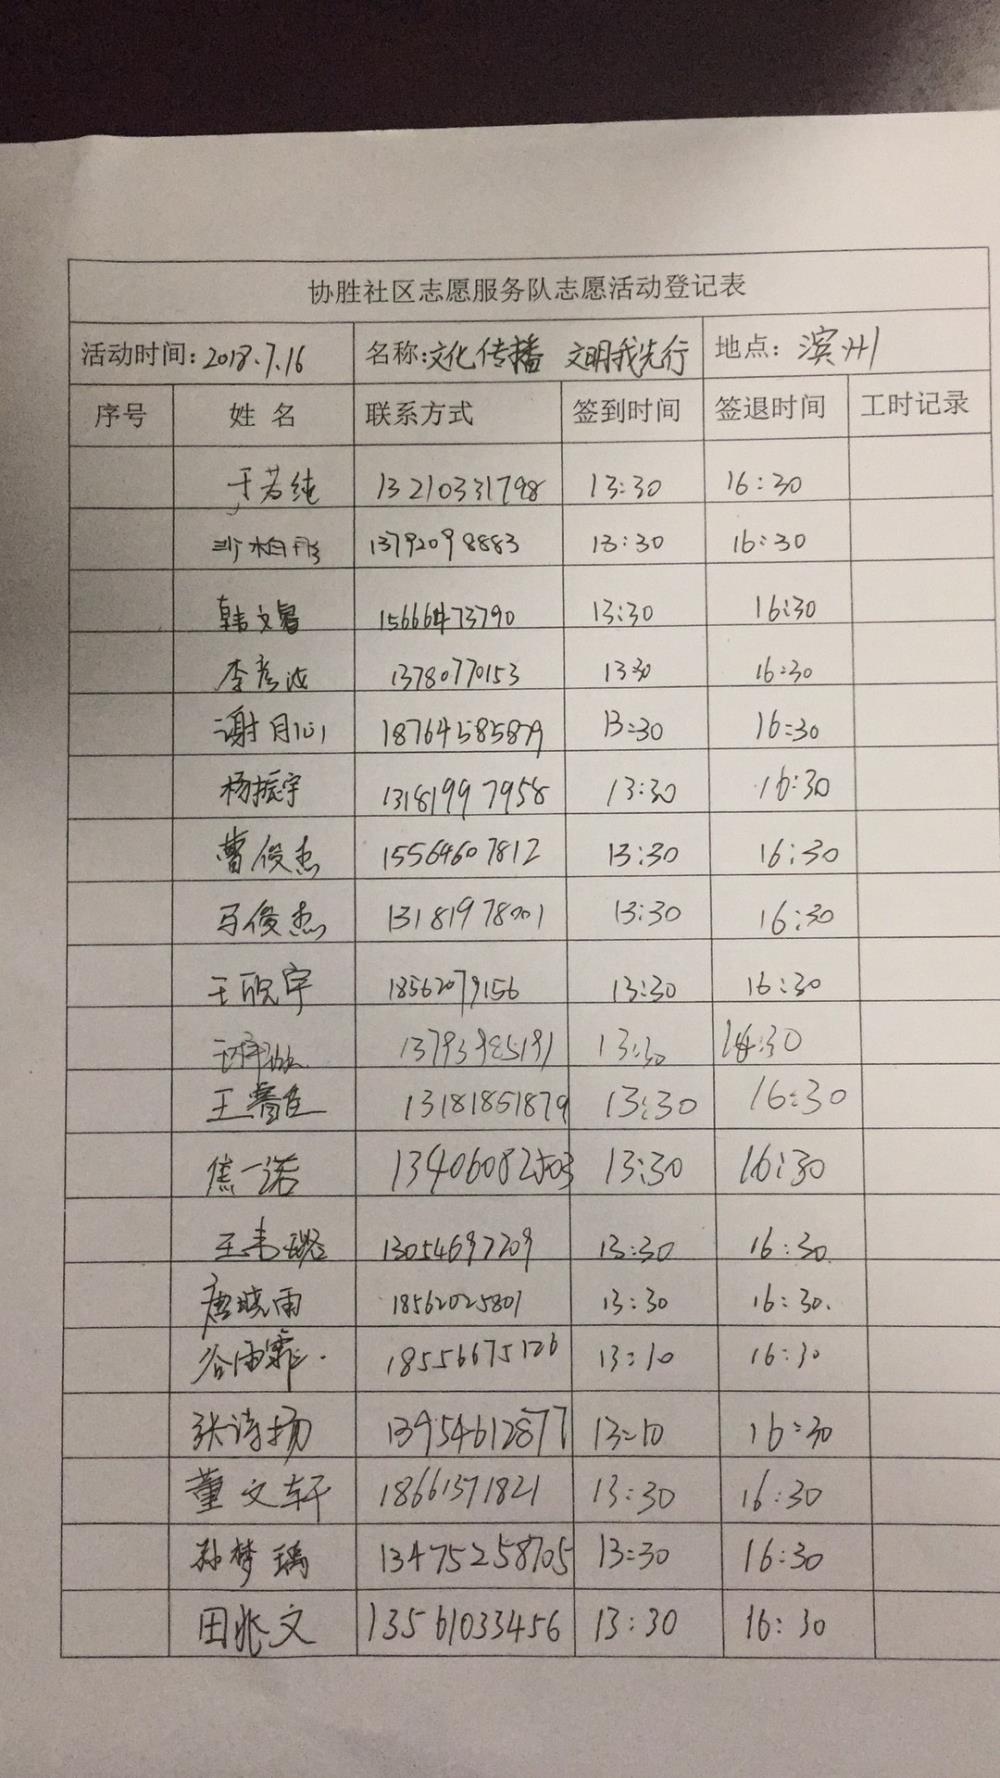 协胜社区志愿服务队志愿活动登记表
活动时间：2018.7.16 名称：文化传播 文明我先行 地点：滨州
序号 姓名 联系方式 签到时间 签退时间 工时记录
于若纯 13210331798 13:30 16:30
13792098883 13:30 16:30
韩文暑 15666473790 13:30 16:30
李彦波 13780770153 13:30 16:30
谢月沁 18764585879 13:30 16:30
杨振宇 13181997958 13:30 16:30
曹俊杰 15564607812 13:30 16:30
马俊杰 13181978001 13:30 16:30
王欣宇 18562079156 13:30 16:30
13793985191 13:30
王睿佳 13181851879 13:30 16:30
焦一诺 13406082503 13:30 16:30
王韦璐 13054697209 13:30 16:30
唐晓雨 18562025801 13:30 16:30.
谷雨霏. 18556675126 13:10 16:30
张诗扬 13954612877 13:10 16:30
董文轩 18661371821 13:30 16:30
孙梦瑀 13475258705 13:30 16:30
田兆文 13561033456 13:30 16:30